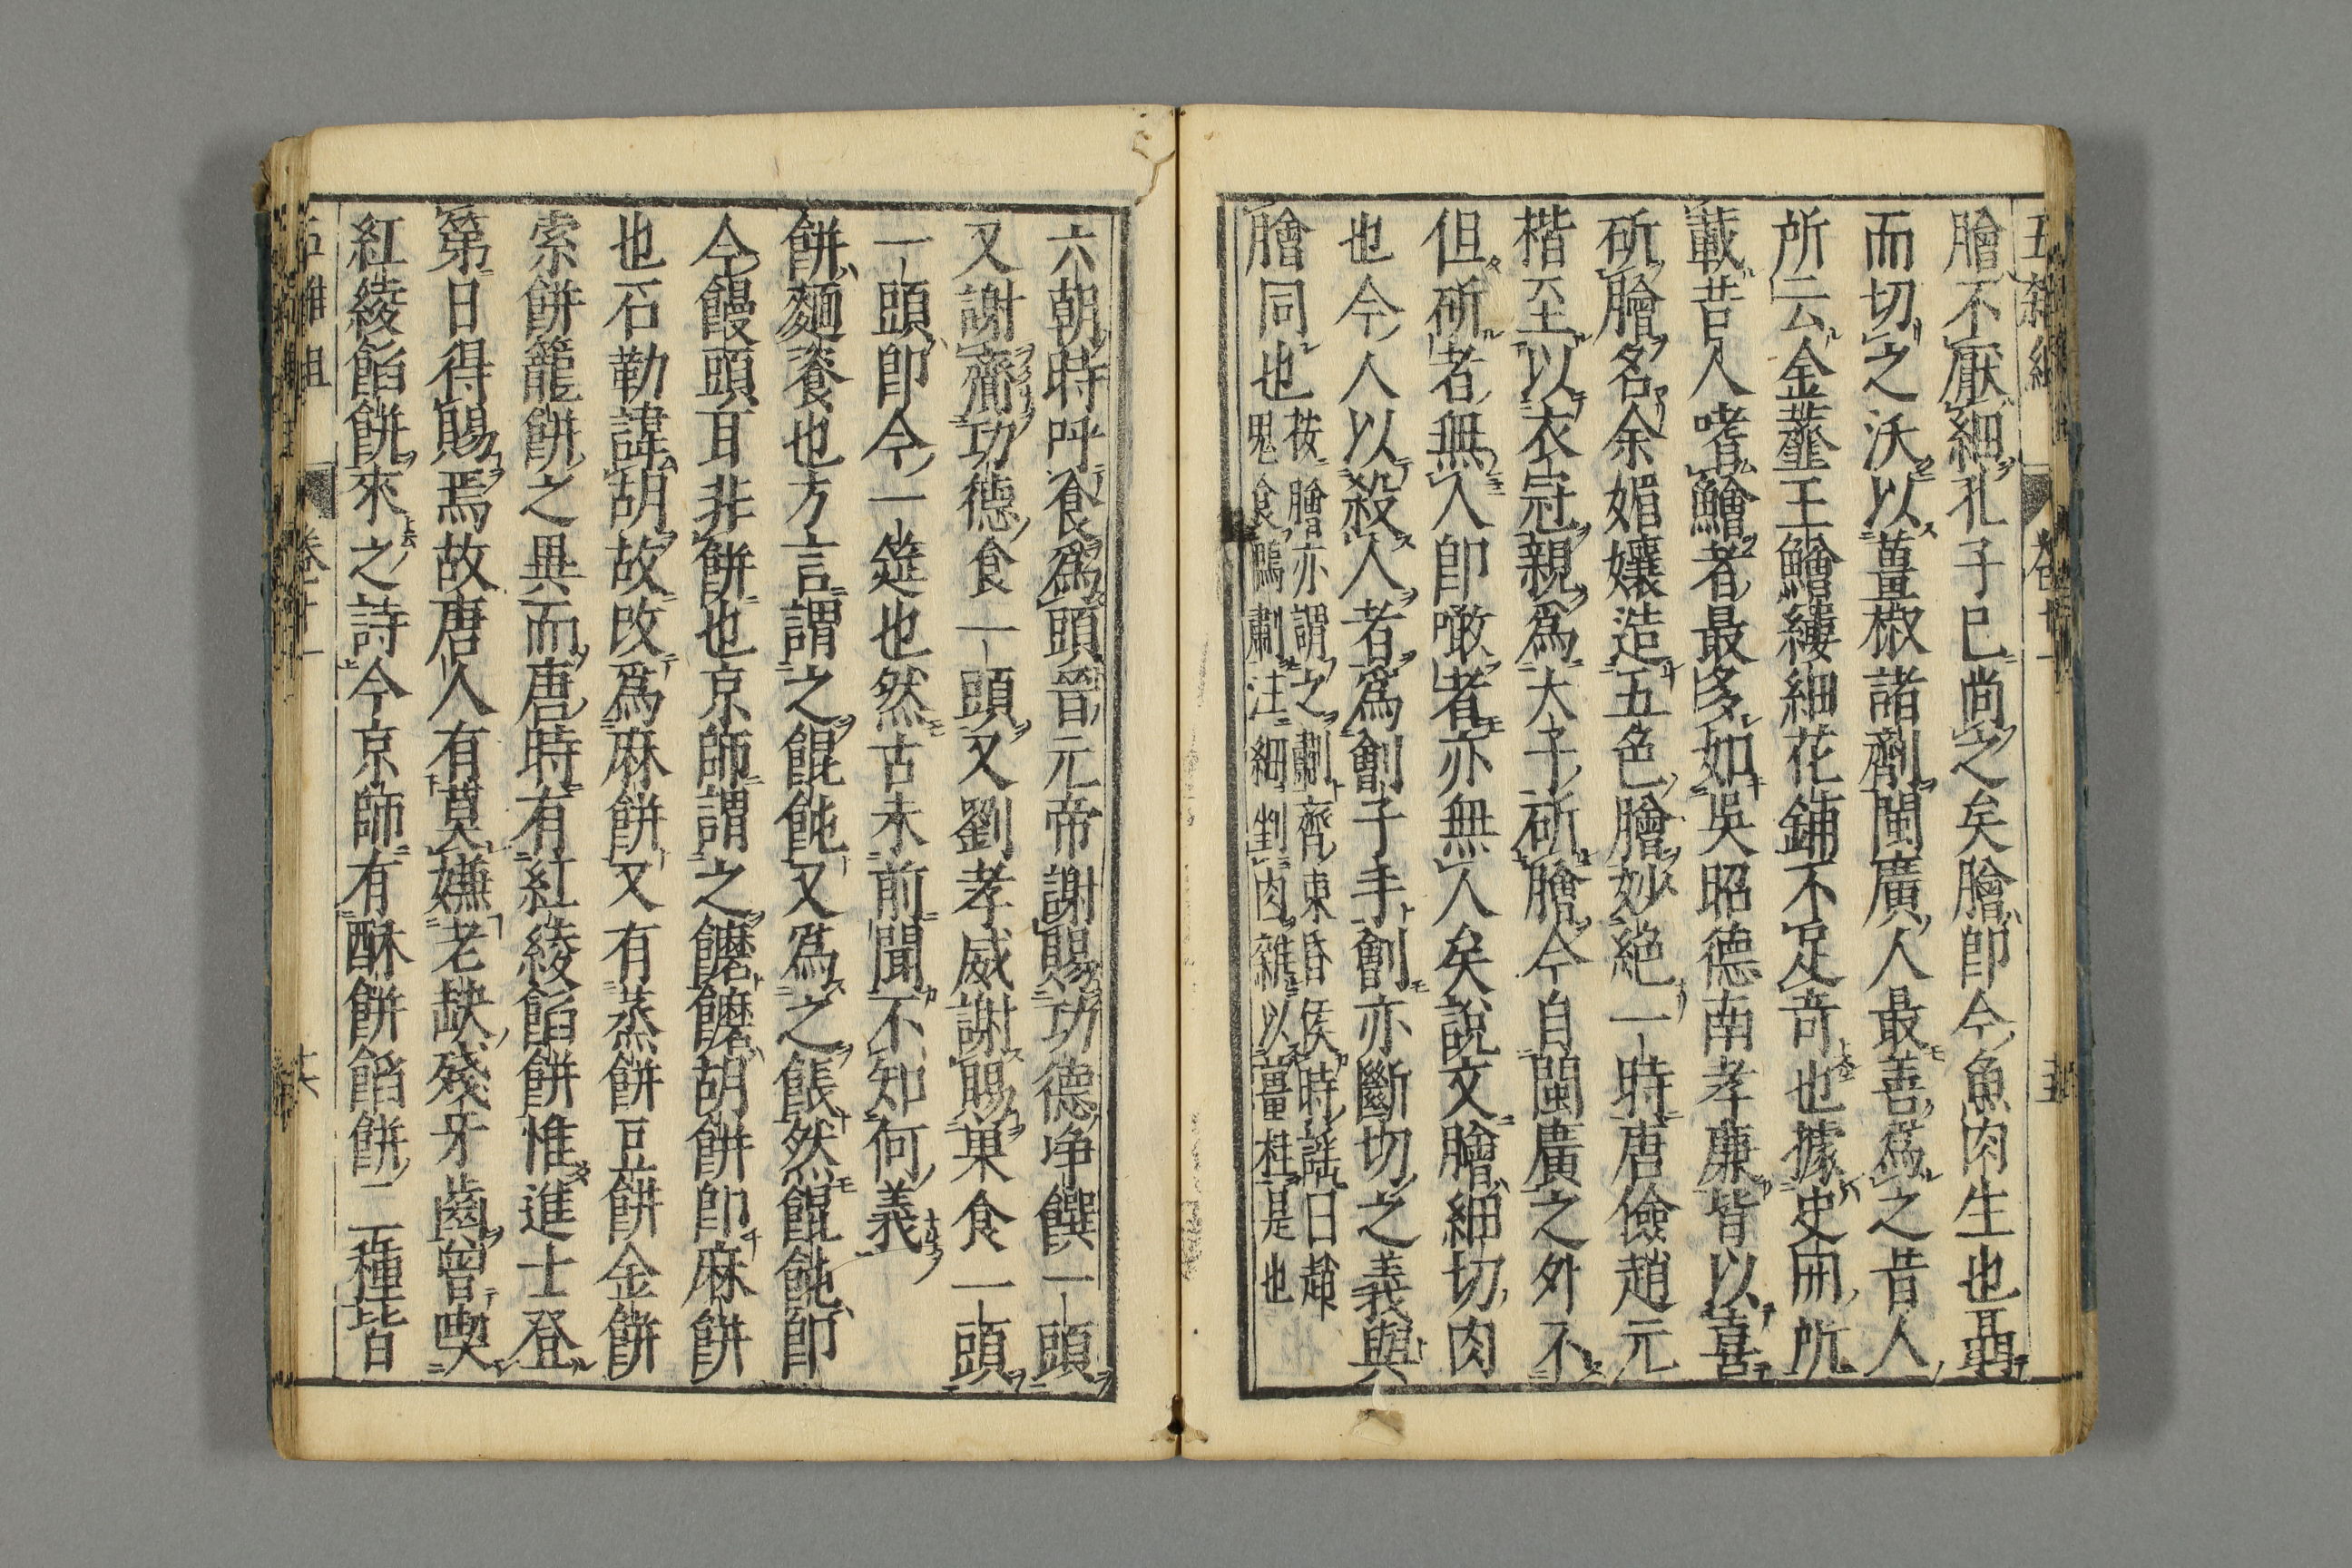 膾不厭細孔子已尚之矣膾即今魚肉生也聶
而切之沃以薑椒諸劑閩廣人最善爲之昔人
所云金虀玉鱠縷細花鋪不足奇也據史冊所
載昔人嗜鱠者最多如吳昭德南孝廉皆以喜
斫膾名余媚孃造五色膾妙絶一時唐儉趙元
楷至以衣冠親爲太子斫膾今自閩廣之外不
但斫者無人即噉者亦無人矣說文膾細切肉
也今人以殺人者爲劊子手劊亦斷切之義與
膾同也
按膾亦謂之劀齊東昏侯時謠曰趙
鬼食鴨劀注細剉肉雜以薑桂是也
六朝時呼食爲頭晉元帝謝賜功德净饌一頭
又謝齋功德食一頭又劉孝威謝賜菓食一頭
一頭即今一筵也然古未前聞不知何義
餅麵餈也方言謂之餛飩又爲之餦然餛飩即
今饅頭耳非餅也京師謂之饝饝胡餅即麻餅
也石勒諱胡故改爲麻餅又有蒸餅豆餅金餅
索餅籠餅之異而唐時有紅綾餡餅惟進士登
第日得賜焉故唐人有莫嫌老缺殘牙齒曾喫
紅綾餡餅來之詩今京師有酥餅餡餅二種皆
卷十一